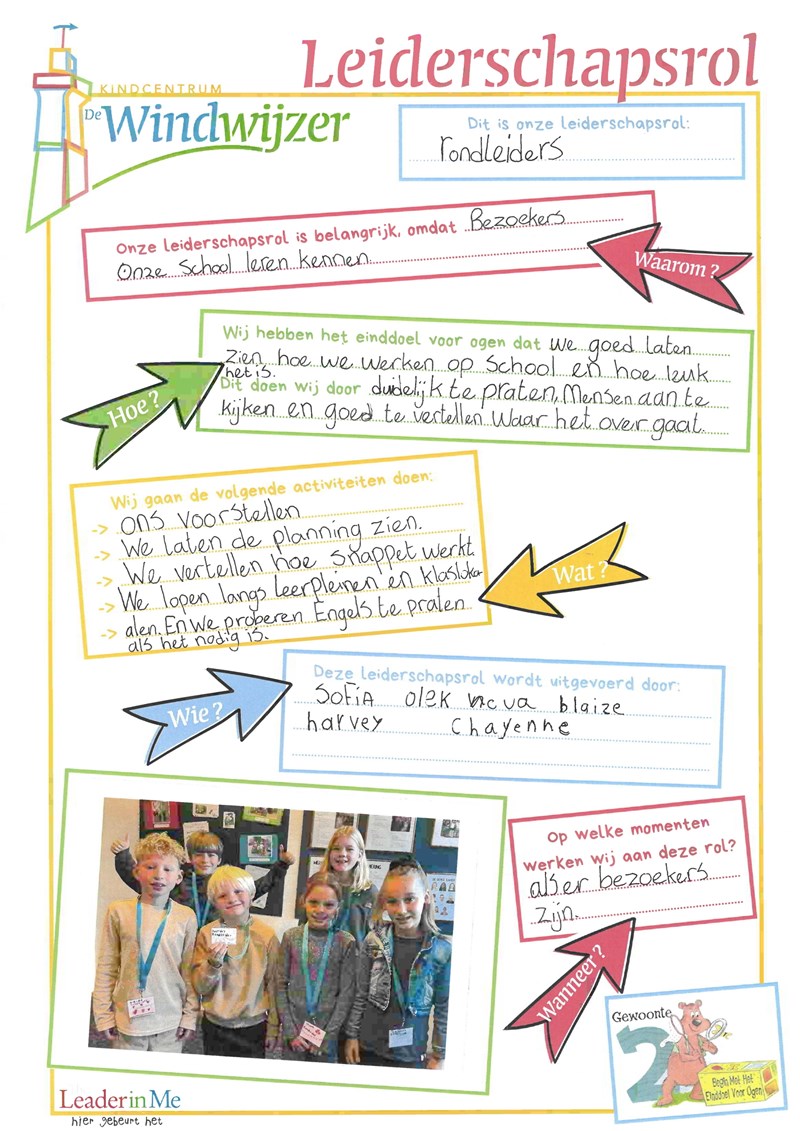 Leiderschapsrol
KINDCENTRUM
De Windwijzer
Dit is onze leiderschapsrol:
rondleiders
Onze leiderschapsrol is belangrijk, omdat Bezoekers
Onze School leren kennen.
Waarom?
Wij hebben het einddoel voor ogen dat we goed laten
zien hoe we werken op school en hoe leuk
het is.
Dit doen wij door duidelijk te praten, Mensen aan te
kijken en goed te vertellen waar het over gaat.
Hoe?
Wij gaan de volgende activiteiten doen:
-> ons voorstellen
-> We laten de planning zien.
-> We vertellen hoe snappet werkt.
-> We lopen langs leerpleinen en klaslok
-> alen. En we proberen Engels te praten
als het nodig is.
Wat?
Deze leiderschapsrol wordt uitgevoerd door:
SoFiA olek blaize
harvey Chayenne
Wie?
Op welke momenten
werken wij aan deze rol?
als er bezoekers
zijn.
Wanneer?
Gewoonte
2
Begin Met Het
Einddoel Voor Ogen
Leader in Me
hier gebeurt het